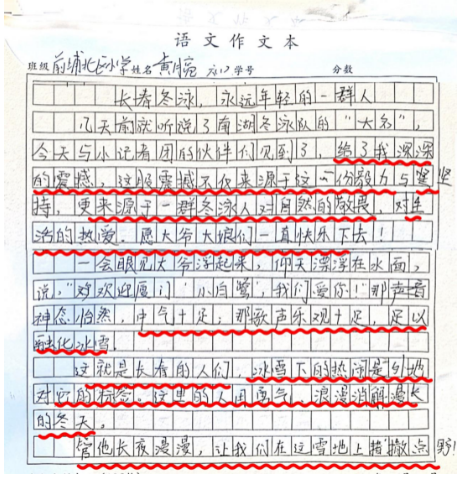 语文作文本
班级 前埔北区小学 姓名 黄 学号 分数
长春冬泳，永远年轻的一群人
几天前就听说了南湖冬泳队的“大名”，
今天与小记者团的伙伴们见到了，给了我深深
的震撼，这股震撼不仅来源于这一份毅力与坚
持，更来源于一群冬泳人对自然的敬畏，对生
活的热爱。愿大爷大娘们一直快乐下去！
一会眼见大爷浮起来，仰天漂浮在水面，
说，“欢欢迎厦门‘小白鹭’我们爱你！”那声音
神态怡然，中气十足；那歌声乐观十足，足以
融化冰雪。
这就是长春的人们，冰雪下的热闹是引地
对它的标签。这里的人用勇气、浪漫消解漫长
的冬天。
管他长夜漫漫，让我们在这雪地上撒点野！